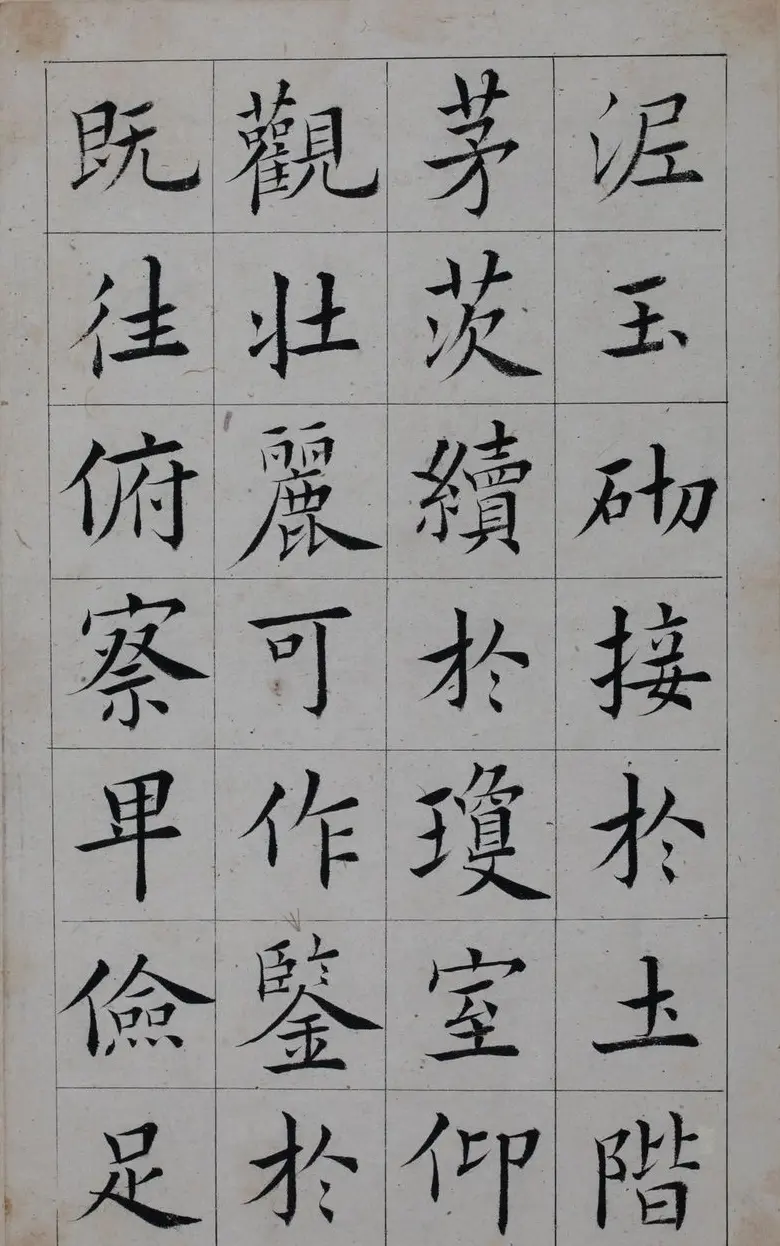 泥玉砌接於土階
茅茨續於瓊室仰
觀壯麗可作鑒於
既往俯察卑儉足